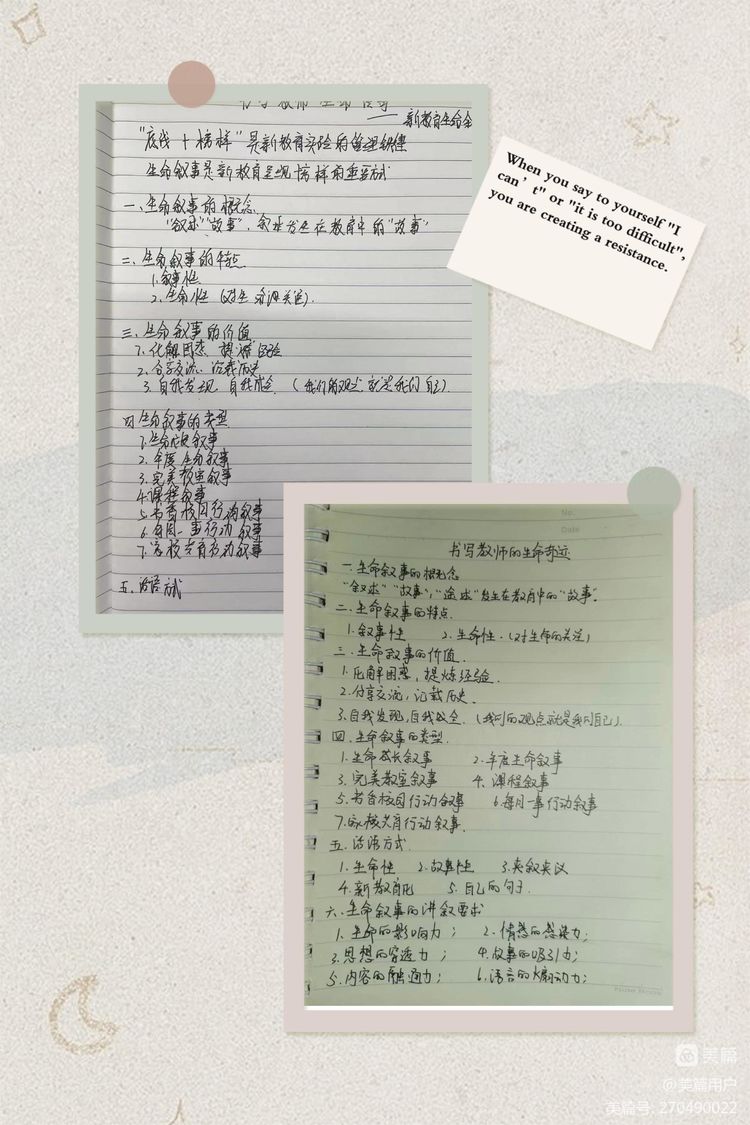 书写教师生命传奇
——新教育生命叙
"底线+榜样"是新教育实验的管理
生命叙事是新教育呈现榜样的重要方式
一、生命叙事的概念
"叙述""故事",叙述发生在教育中的"故事"
二、生命叙事的特点
1.叙事性
2.生命性(对生命的关注).
三、生命叙事的价值
1.化解困惑 提炼经验
2.分享交流、记载历史
3.自我发现,自我成全.(我们的观点就是我们自己)
四 生命叙事的类型
1.生命成长叙事
2.年度生命叙事
3.完美教室叙事
4.课程叙事
5.书香校园行动叙事
6.每月一事行动叙事
7.家校共育行动叙事
五、话语方式
When you say to yourself "I
can't" or "it is too difficult",
you are creating a resistance.
No.
Date
书写教师的生命奇迹
一.生命叙事的概念
"叙述""故事","途述"发生在教育中的"故事".
二.生命叙事的特点.
1.叙事性 2.生命性.(对生命的关注)
三.生命叙事的价值.
1.化解困惑,提炼经验.
2.分享交流,记载历史.
3.自我发现,自我成全.(我们的观点就是我们自己).
四.生命叙事的类型.
1.生命成长叙事 2.年度生命叙事
3.完美教室叙事 4.课程叙事
5.书香校园行动叙事 6.每月一事行动叙事
7.家校共育行动叙事.
五.话语方式.
1.生命性 2.故事性 3.夹叙夹议
4.新教育化 5.自己的句子.
六.生命叙事的讲叙要求
1.生命的影响力; 2.情感的感染力;
3.思想的穿透力; 4.故事的吸引力;
5.内容的融通力; 6.语言的煽动力;
美篇
@美篇用户
美篇号: 270490022